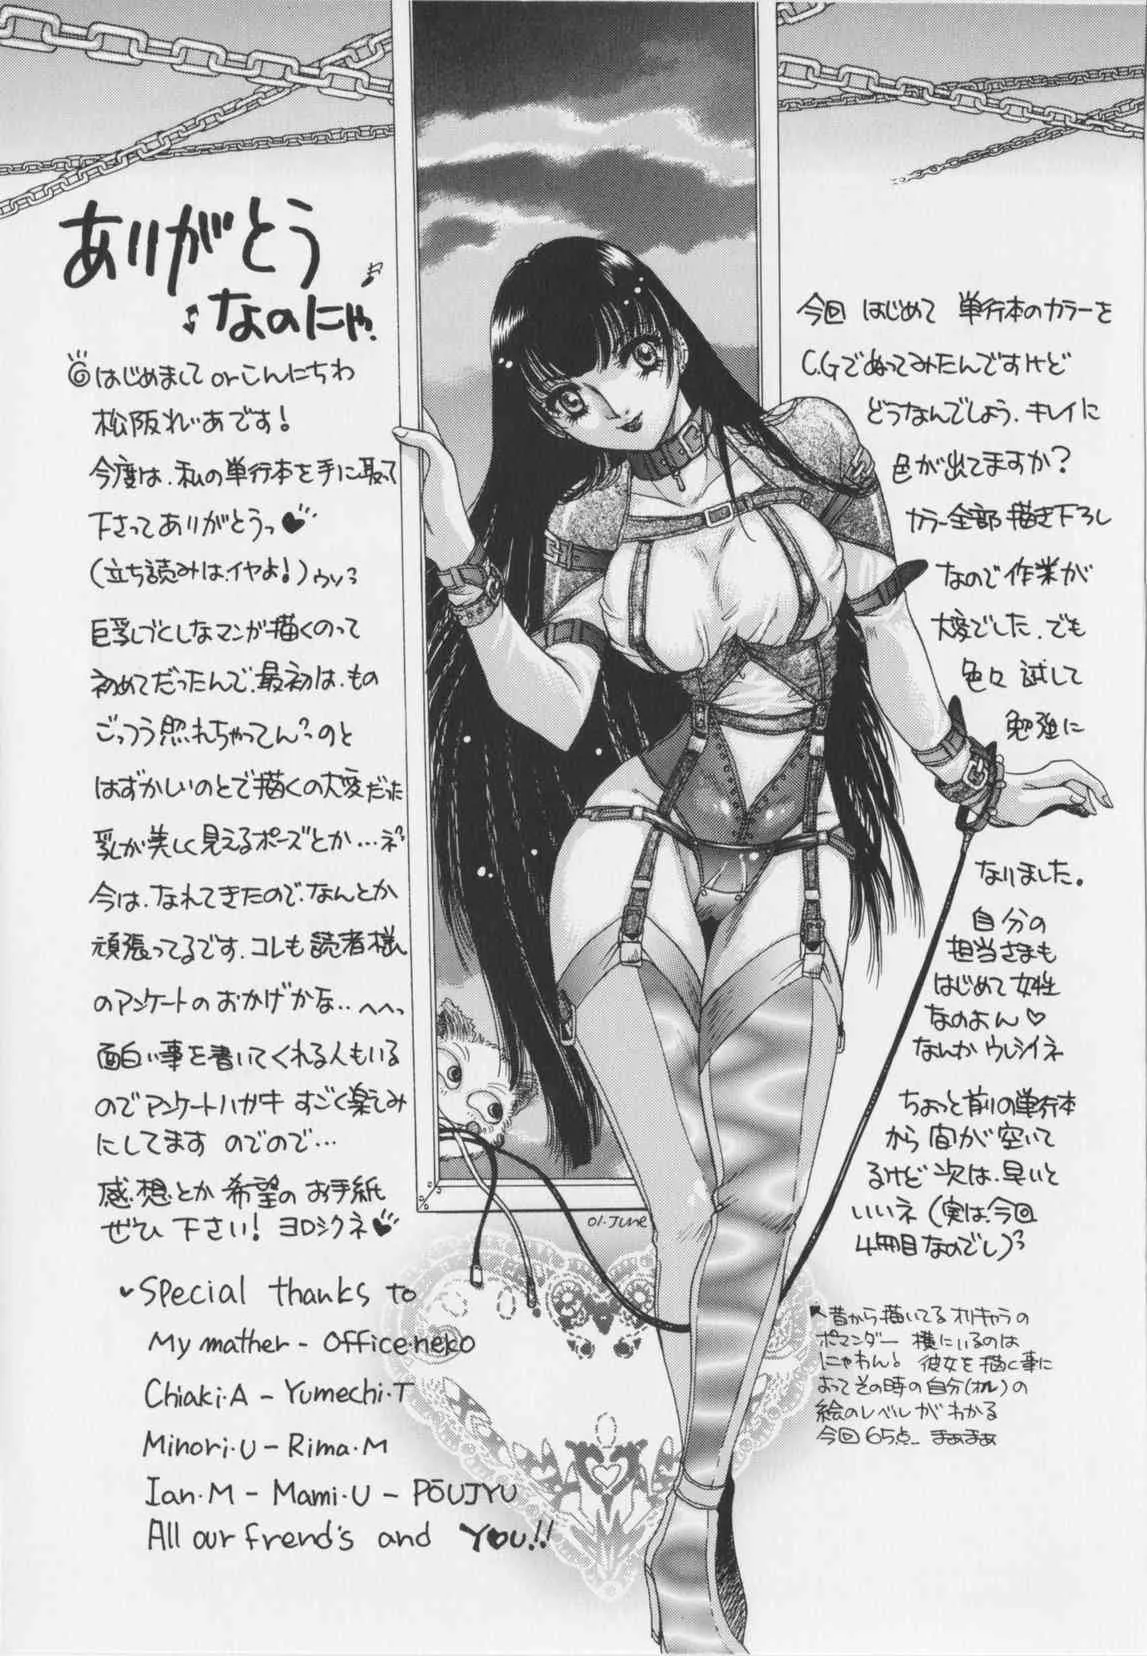 ありがとう
なのにゃ
はじめまして or こんにちわ
松阪れいあです!
今度は、私の単行本を手に取って
下さってありがとうっ♥
(立ち読みは、イヤよ!)
巨乳しばくとしなマンガ描くのって
初めてだったんで、最初は、もの
ごっつう照れちゃってん?のと
はずかしいのとで描くの大変だった
乳が美しく見えるポーズとか…ネ?
今は、なれてきたので、なんとか
頑張ってるです。コレも読者様ん
のアンケートのおかげかな‥へへっ
面白い事を書いてくれる人もいる
のでアンケートハガキすごく楽しみ
にしてます のでので…
感想とか希望のお手紙
ぜひ下さい! ヨロシクネ♥
♥Special thanks to
My mather - Office・neko
Chiaki・A - Yumechi・T
Minori・U - Rima・M
Ian・M - Mami・U - PōUJYU
All our frend's and YOU!!
01.June
今回 はじめて 単行本のカラーを
C.Gでぬってみたんですけど
どうなんでしょう、キレイに
色が出てますか?
カラー全部描き下ろし
なので作業が
大変でした、でも
色々試して
勉強に
なりました。
自分の
担当さまも
はじめて女性
なのよん♡
なんかウレシイネ
ちょっと前の単行本
から間が空いて
るけど次は、早いと
いいネ(実は、今回
4冊目なのでし)
昔から描いてるオリキャラの
ポマンダー 横にいるのは
にゃわん! 彼女を描く事に
よってその時の自分(オレ)の
絵のレベルがわかる
今回65点_ まぁまぁ